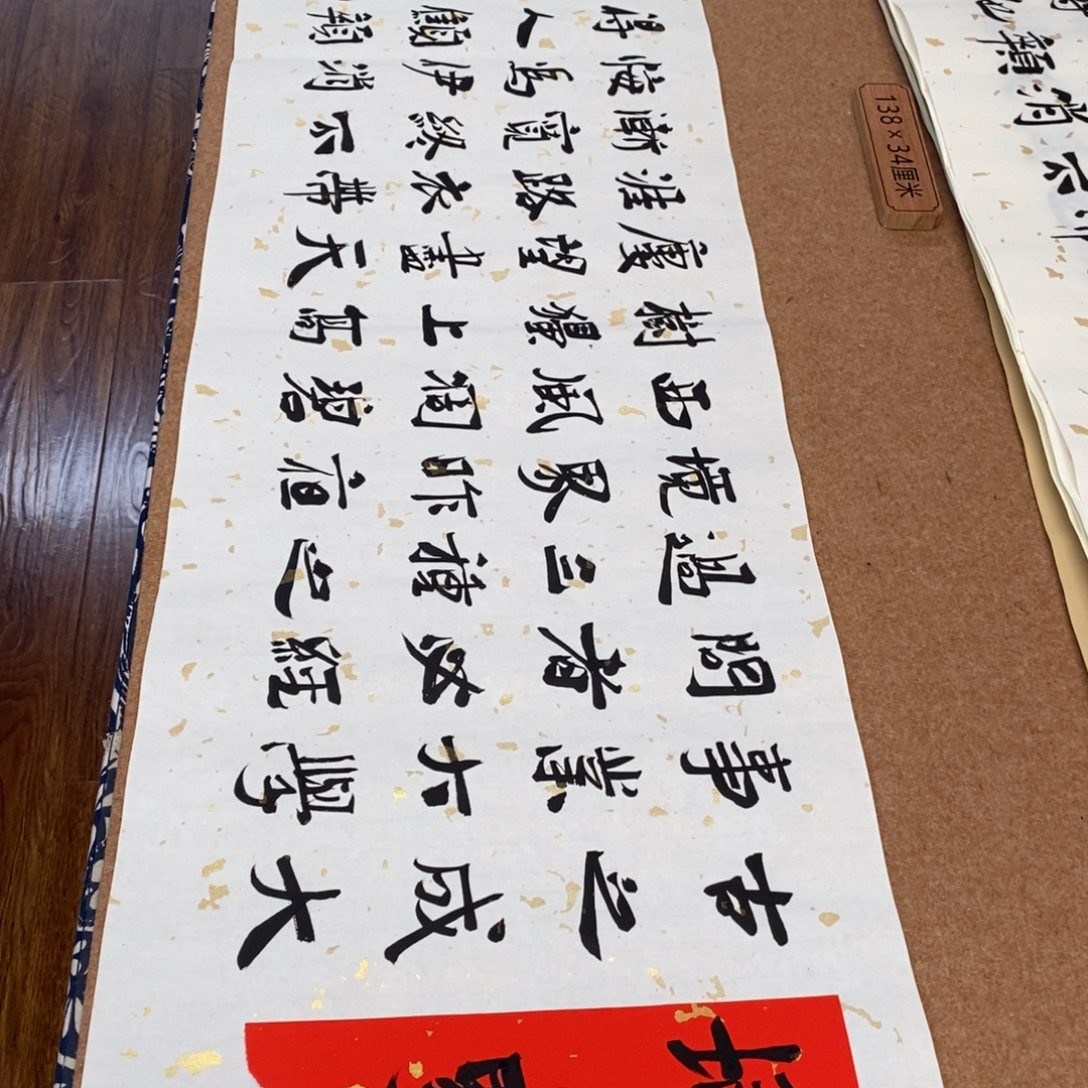 古之成大
事業大學
問者必經
過三種之
境界昨夜
西風凋碧
樹獨上高
樓望盡天
涯路衣帶
漸寬終不
悔為伊消
得人顦顇
138×34厘米
消
不